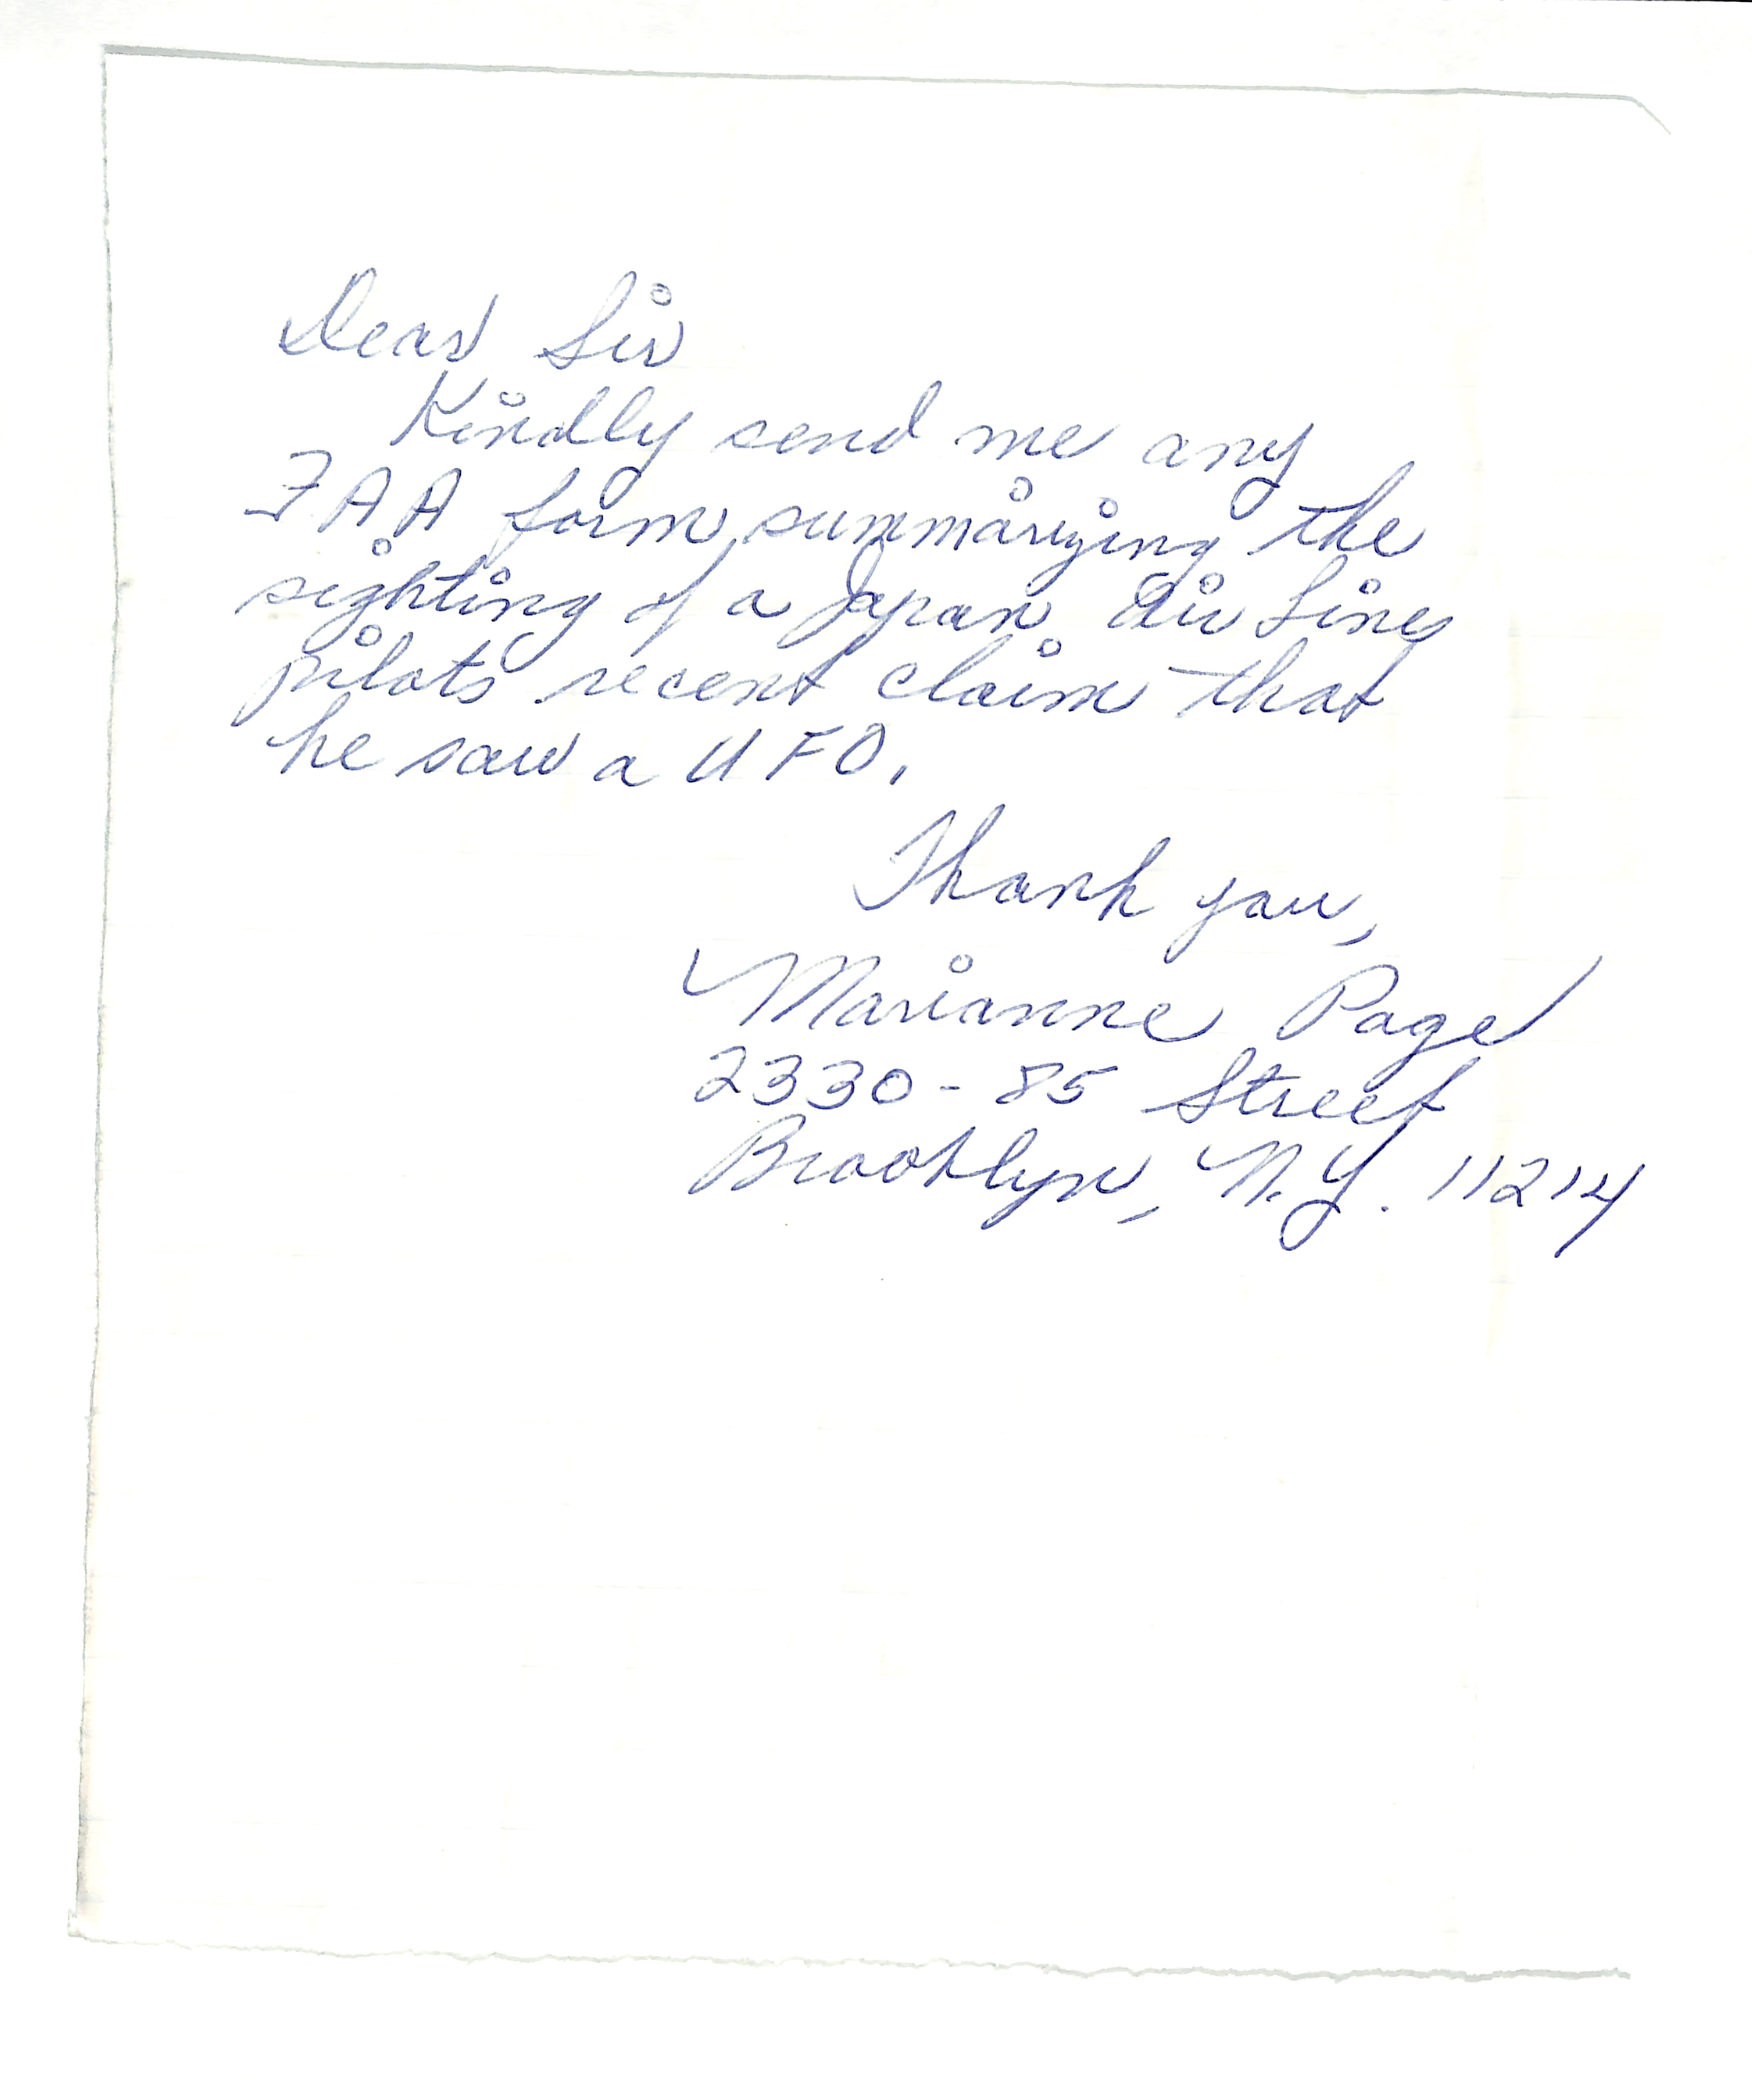 Dear Sir
Kindly send me any
FAA form summarizing the
sighting of a Japan Air Lines
pilots recent claim that
he saw a UFO.
Thank you,
Marianne Page
2330-85 Street
Brooklyn, N.Y. 11214